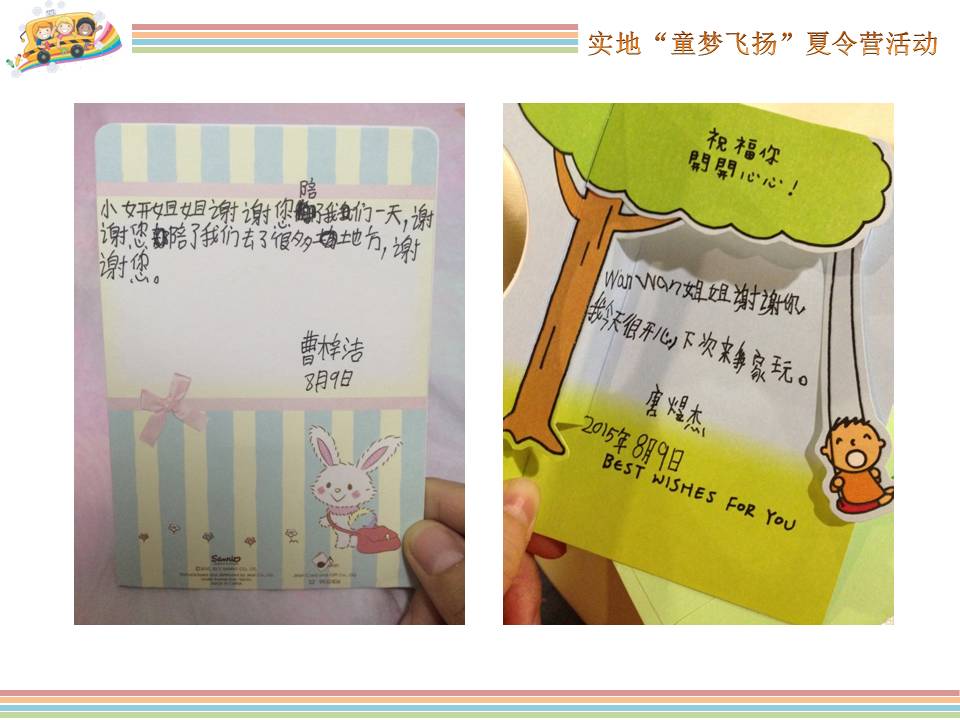 实地“童梦飞扬”夏令营活动
陪
小妍姐姐谢谢您了我们一天,谢
谢您陪了我们去了很多地方,谢
谢您。
曹梓洁
8月9日
Sanrio
祝福你
開開心心!
WanWan姐姐谢谢你
我今天很开心,下次来我家玩。
唐煜杰
2015年8月9日
BEST WISHES FOR YOU